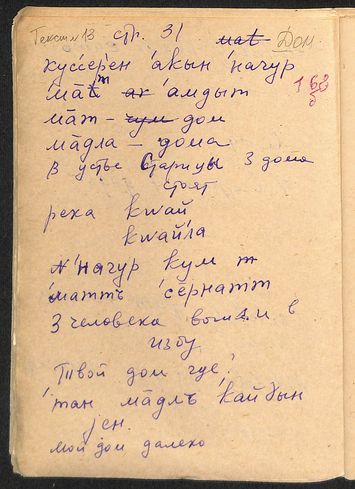 Текст № 13 стр. 31 mat Дом.
куссерен акын начур
мāт ак амдыт
мāт - чум дом
мāдла - дома
в устье Старицы 3 дома
стоят
река квай
квайла
начур кум
маттъ сернатт
3 человека вошли в
избу
Твой дом где?
тан мāдлъ кайбын
jен.
мой дом далеко